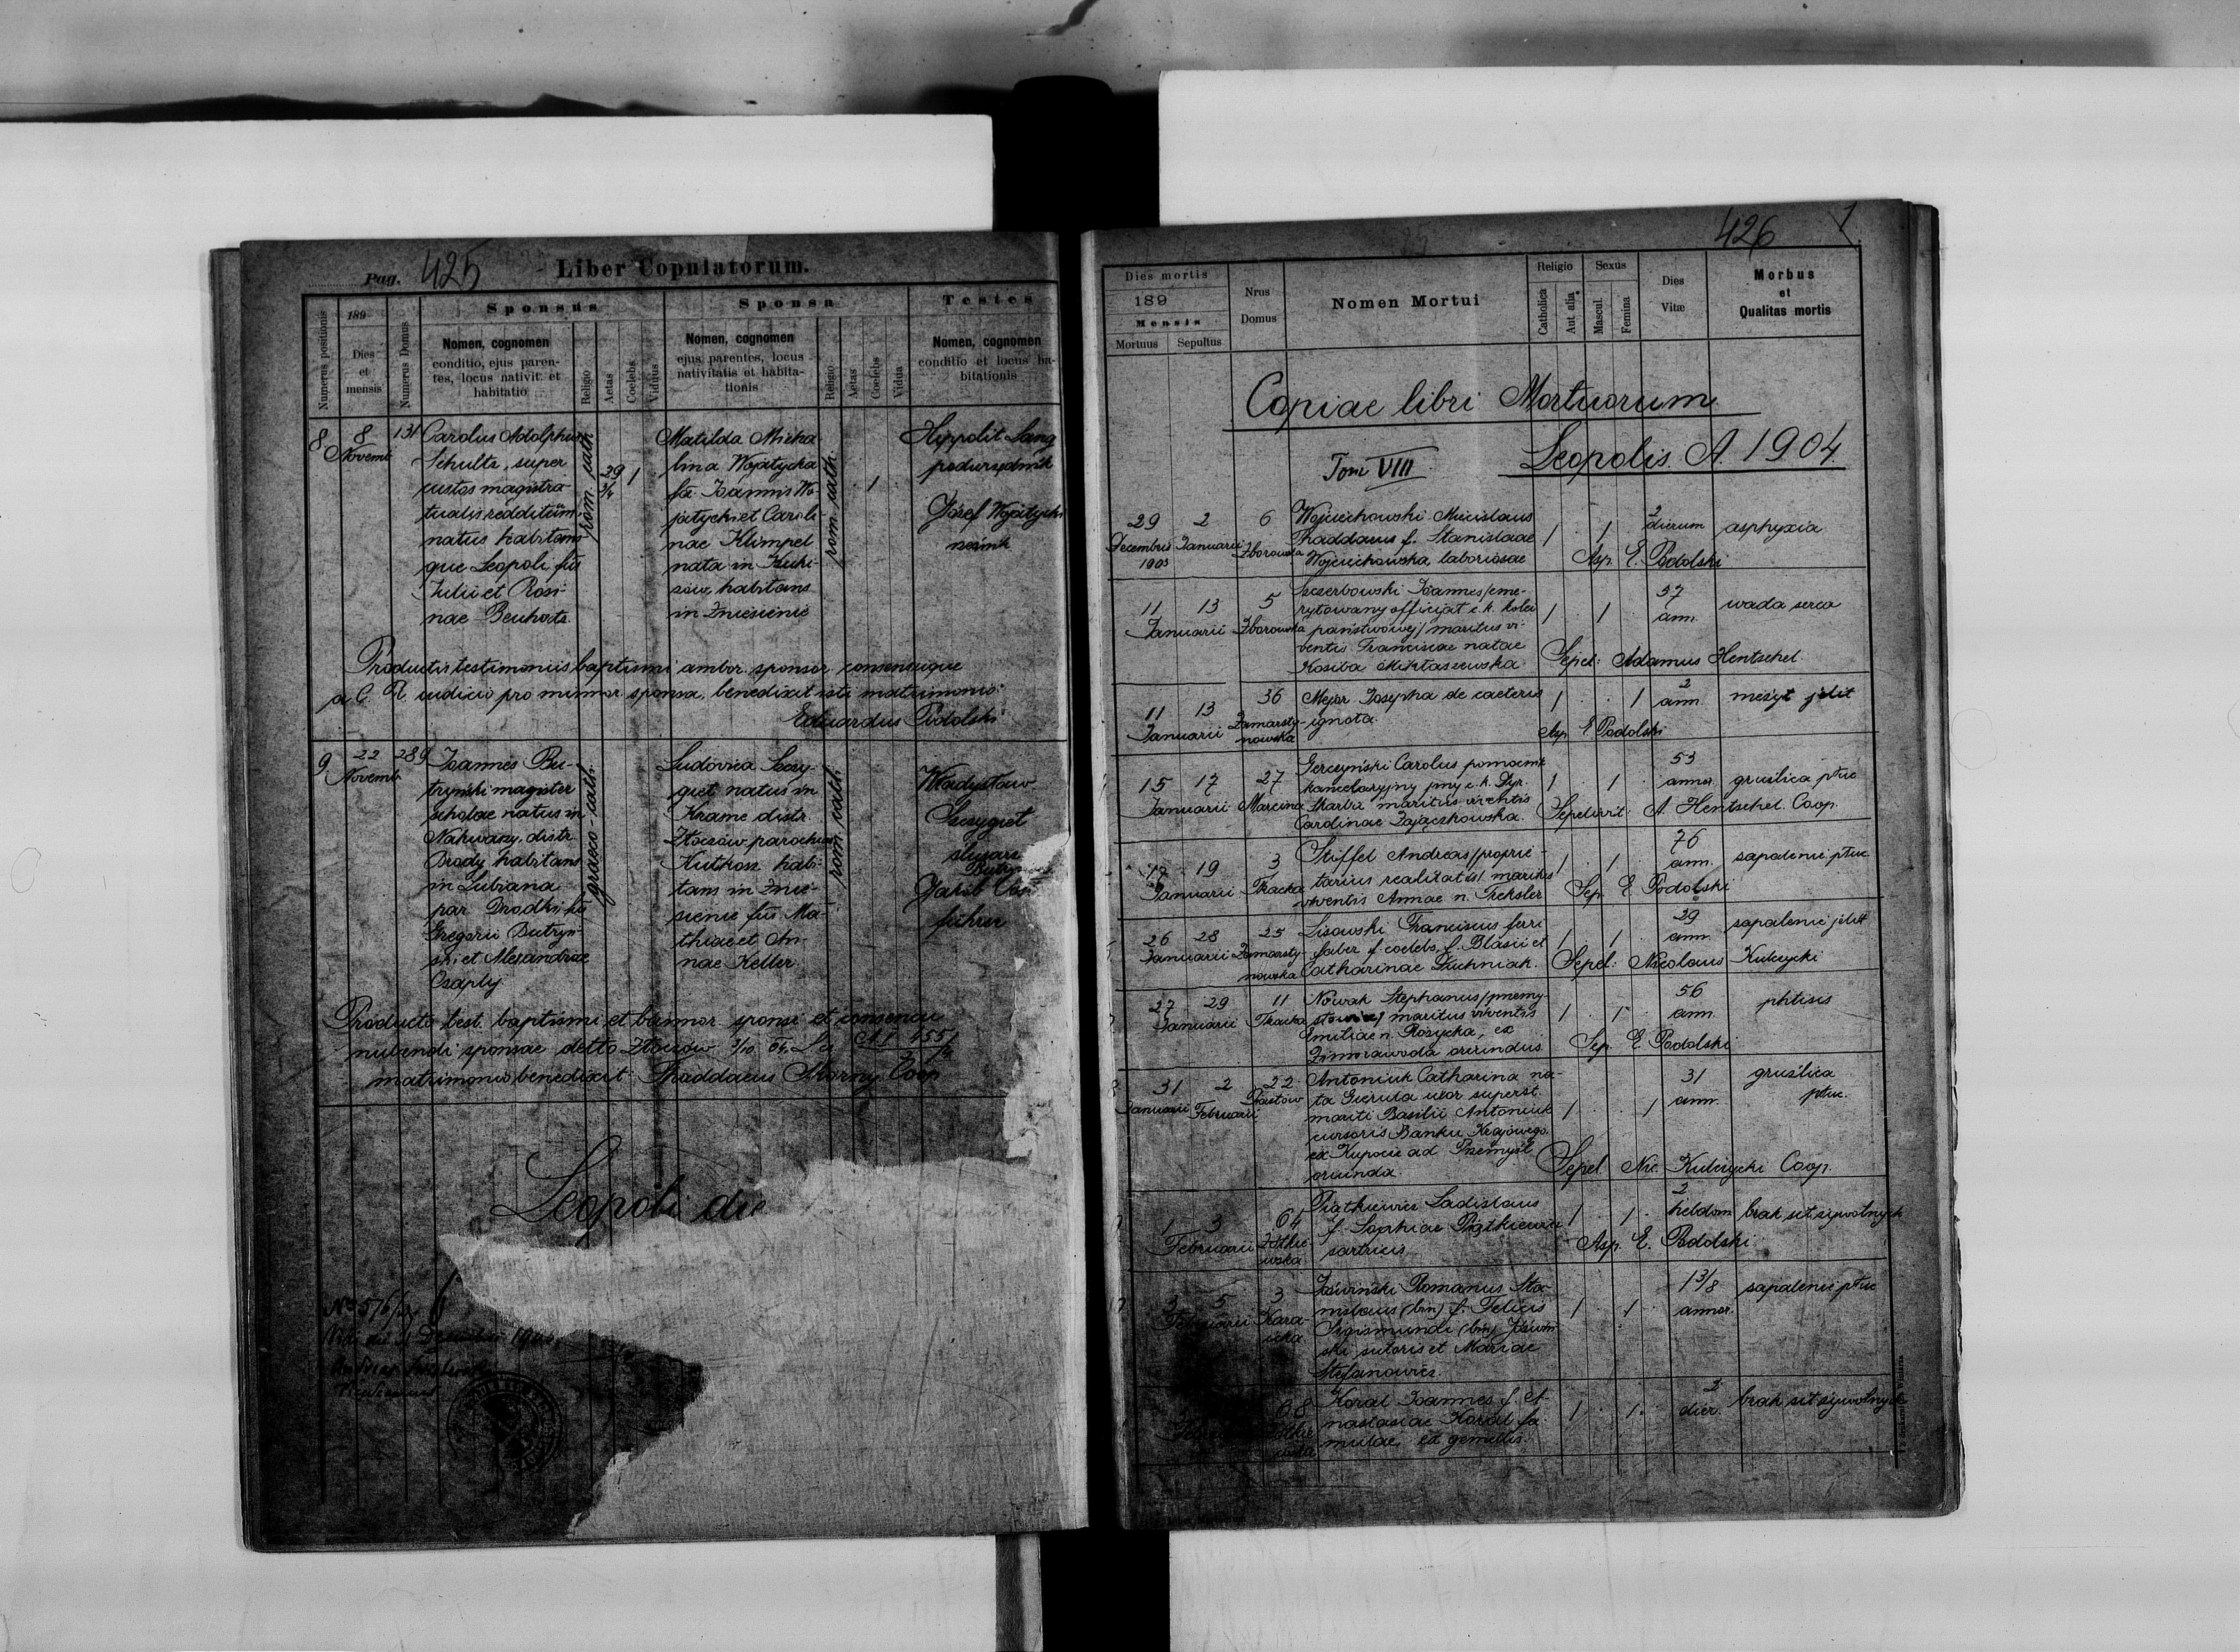 Pag. 425
Liber Copulatorum.
Numerus positionis
189
Dies
et
mensis
Numerus Domus
Sponsus
Nomen, cognomen
conditio, ejus paren-
tes, locus nativit. et
habitatio
Religio
Aetas
Coelebs
Viduus
Sponsa
Nomen, cognomen
ejus parentes, locus
nativitatis et habita-
tionis
Religio
Aetas
Coelebs
Vidua
Testes
Nomen, cognomen
conditio et locus ha-
bitationis
8
8
Novemb
131
Carolus Adolphus
Schultz, super
custos magistra-
tualis reddituum
natus habitans-
que Leopoli fús
Julii et Rosi-
nae
rom. cath.
29
3/4
1
Matilda Micha
lina Wojatycka
fa Joannis Wo-
jatycki et Caroli-
nae Klimpel
nata in
sów, habitans
in Zniesienie
rom. cath.
1
Hippolit Lang
podurzędnik
Józef Wojatycki
Productis testimoniis baptismi ambor. sponsor. consensuque
a C. R. iudicio pro minnor. sponsa, benedixit isti matrimonio:
Eduardus Podolski
9
22
Novemb.
289
Joannes Bu-
tryński magister
scholae natus in
Nakwasza, distr.
Brody habitans
in Lubiana
par. Brodki fús
Gregorii Butryń-
ski et Alexandrae
Czaply
graeco-cath.
Ludovica Szczy-
gieł, natus in
distr.
Złoczów parochiae
Kutkorz habi-
tans in Znie-
sienie fús Ma-
thiae et An-
nae Keller.
rom. cath.
Władysław
Szczygieł
ślusarz
Jakób
führer
Producto test. baptismi et bannor. sponsi et consensu
nubendi sponsae detto Złoczów 3/10. 04,
matrimonio benedixit Thaddaeus Coop
Leopoli die
426
1
Dies mortis
189
Mensis
Mortuus
Sepultus
Nrus
Domus
Nomen Mortui
Religio
Catholica
Aut alia
Sexus
Mascul.
Femina
Dies
Vitæ
Morbus
et
Qualitas mortis
Copiae libri Mortuorum
Tom VIII
Leopolis. A. 1904.
29
Decembris
1903
2
Januarii
6
Zborowska
Wojciechowski Miecislaus
Thaddaeus f. Stanislaae
Wojciechowska laboriosae
1
1
2
dierum
asphyxia
Asp. E. Podolski
11
Januarii
13
5
Zborowska
Szczerbowski Joannes/eme-
rytowany officijał c. k. kolei
państwowej/ maritus vi-
ventis Franciscae natae
Kosiba Mikłaszewska
1
1
57
ann.
wada serca
Sepel: Adamus Hentschel.
11
Januarii
13
36
Zamarsty-
nowska
Josepha de caeteris
ignota.
1
1
2
ann.
nieżyt jelit
Asp E Podolski
15
Januarii
17
27
Marcina
Gerczyński Carolus pomocnik
kancelaryjny przy c. k. Dyr.
Skarbu maritus viventis
Carolinae Zajączkowska.
1
1
53
annor.
gruźlica płuc
Sepelivit: A. Hentschel. Coop.
Januarii
19
3
Tkacka
Stiffel Andreas/proprie-
tarius realitatis/ maritus
viventis Annae n. Treksler
1
1
76
ann.
zapalenie płuc
Sep. E. Podolski
26
Januarii
28
25
Zamarsty-
nowska
Lisowski Franciscus ferri
faber f coelebs, f. Blasii et
Catharinae Duchniak.
1
1
29
ann.
zapalenie jelit
Sepel: Nicolaus Kulczycki
27
Januarii
29
11
Tkacka
Nowak Stephanus/przemy-
maritus viventis
Emiliae n. Rozycka, ex
Zimnawoda oriundus
1
1
56
ann.
phtisis
Sep. E. Podolski
31
Januarii
2
Februarii
22
Piastów
Antoniuk Catharina na-
ta Gierula uxor superst.
mariti Basilii Antoniuk
cursoris Banku Krajowego.
ex ad Przemyśl
oriunda.
1
1
31
ann.
gruźlica
płuc.
Sepel. Nic. Kulczycki Coop.
1
Februarii
3
64
Żółkie-
wska
Piątkiewicz Ladislaus
f. Sophiae Piątkiewicz
sartricis
1
1
2
hebdom
brak sił żywotnych
Asp. E. Podolski
3
Februarii
5
3
Jóźwiński Romanus Sta-
nislaus (bin) f. Felicis
Sigismundi (bin) Jóźwiń-
ski sutoris et Mariae
Stefanowicz.
1
1
1 3/8
annor.
zapalenie płuc
68
Koral Joannes f. A-
nastasiae Koral fa-
mulae, ex gemellis.
1
1
2
dier.
brak sił żywotnych